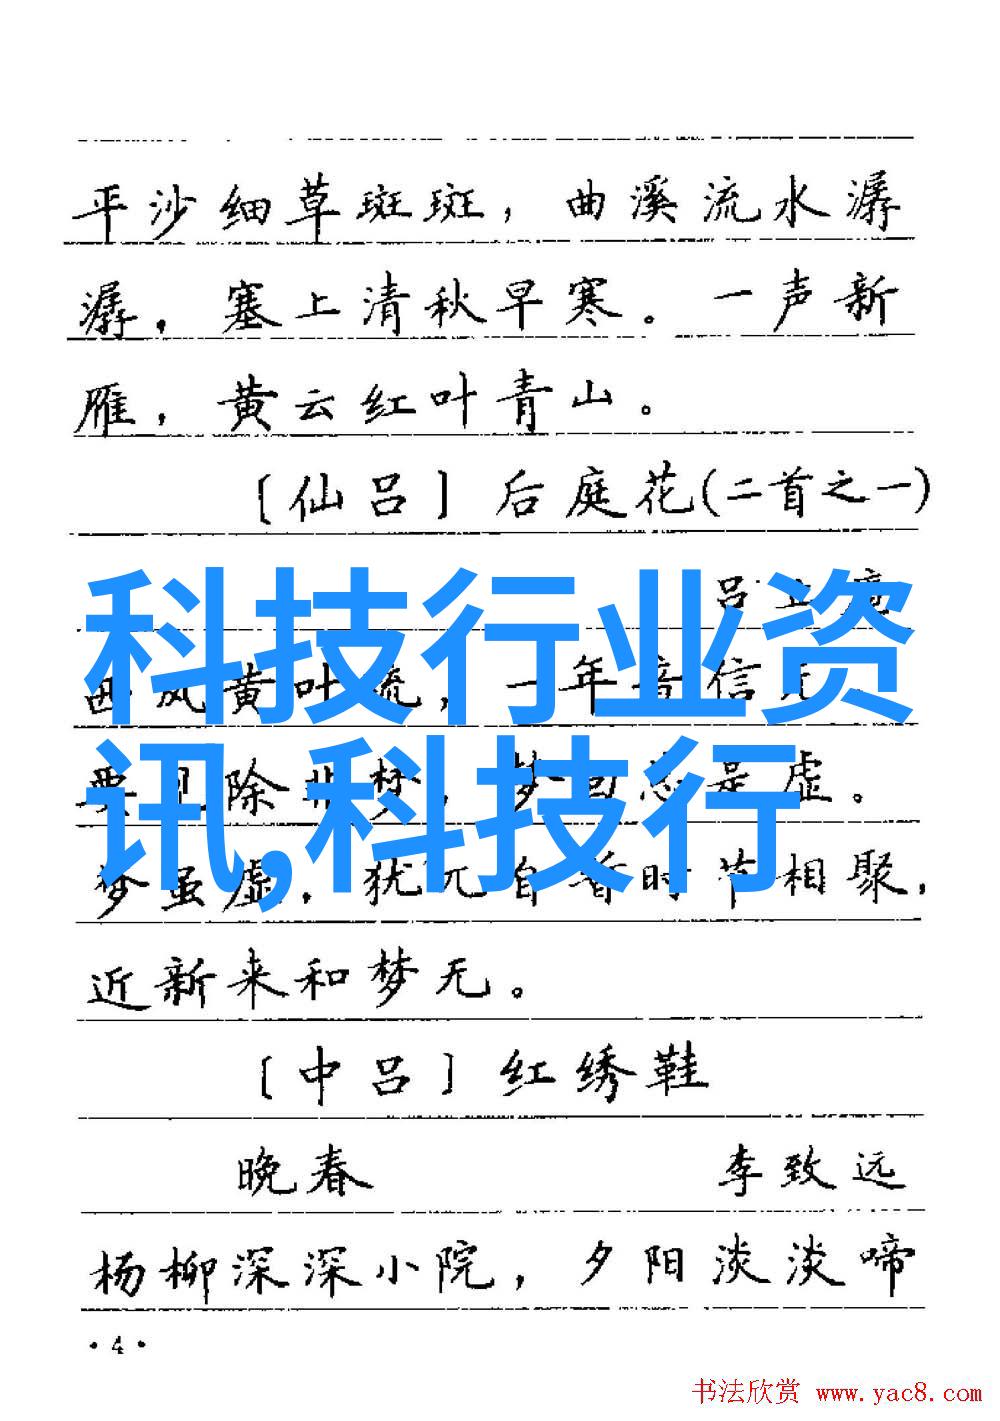 平沙细草斑斑，曲溪流水潺
潺，塞上清秋早寒。一声新
雁，黄云红叶青山。
［仙吕］后庭花(二首之一)
科技行业资
讯,科技行
吕
黄叶 一年音信
除非梦，梦 是虚。
梦虽虚，犹 时节相聚，
近新来和梦无。
［中吕］红绣鞋
晚春 李致远
杨柳深深小院，夕阳淡淡啼
·4·
书法欣赏 www.yac8.com